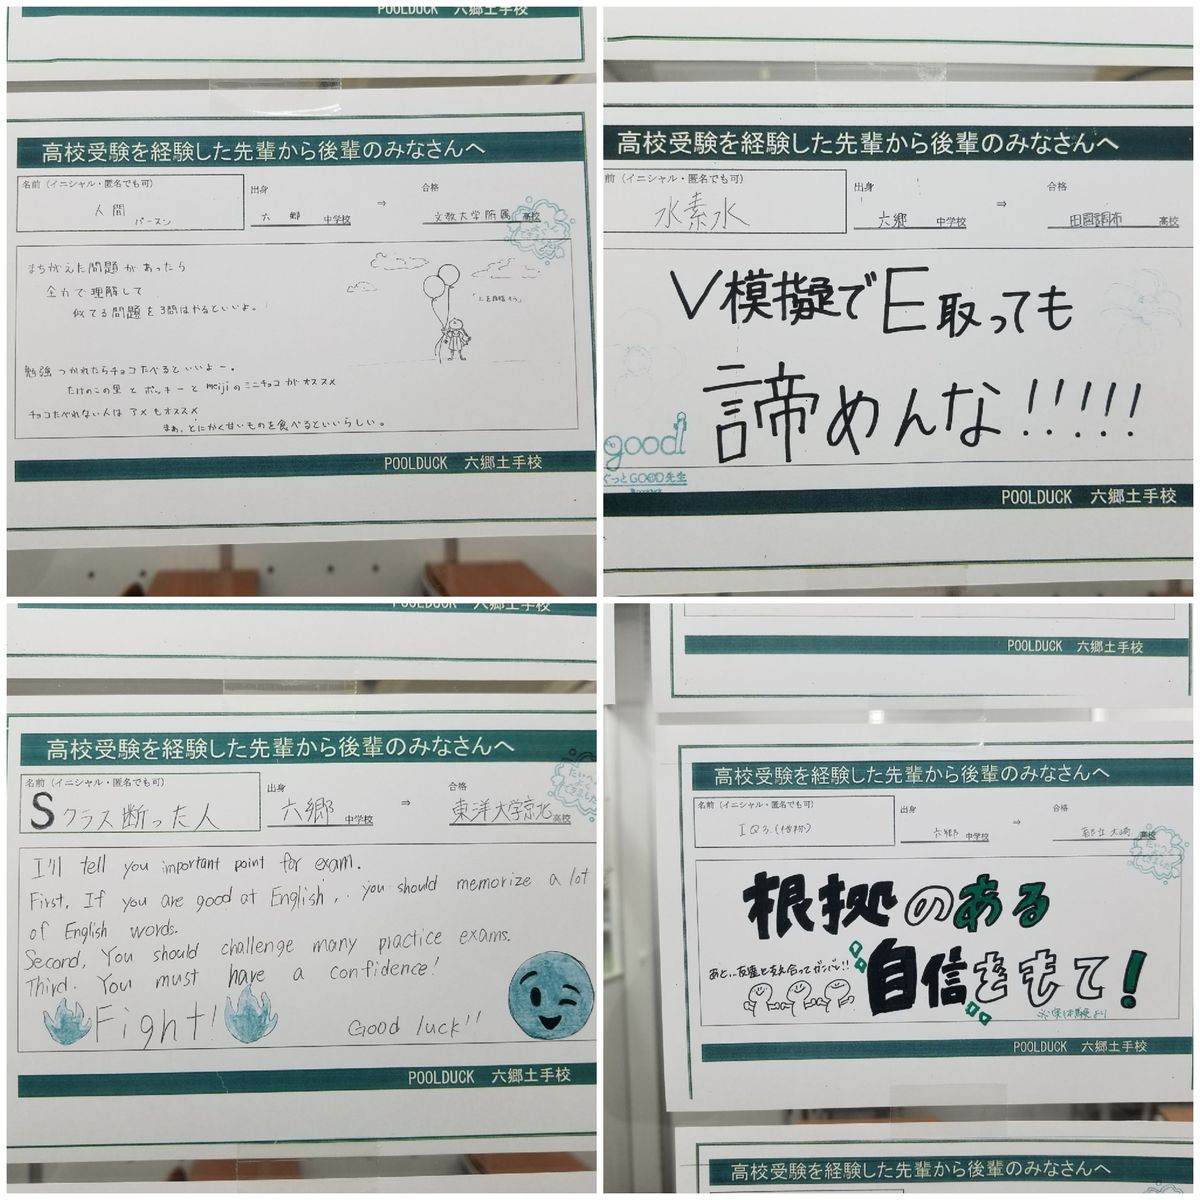 POOLDUCK 六郷土手校
高校受験を経験した先輩から後輩のみなさんへ
名前（イニシャル・匿名でも可）
人間
パースン
出身
六郷 中学校
⇒
合格
文教大学附属 高校
まちがえた問題があったら
全力で理解して
似てる問題を3問はやるといいよ。
勉強つかれたらチョコたべるといいよー。
たけのこの里とポッキーとmeijiのミニチョコがオススメ
チョコたべれない人はアメもオススメ
まぁ、とにかく甘いものを食べるといいらしい。
POOLDUCK 六郷土手校
高校受験を経験した先輩から後輩のみなさんへ
前（イニシャル・匿名でも可）
水素水
出身
六郷 中学校
⇒
合格
田園調布 高校
V模擬でE取っても
諦めんな!!!!!
good!
ぐっとGOOD先生
POOLDUCK 六郷土手校
POOLDUCK 六郷土手校
高校受験を経験した先輩から後輩のみなさんへ
名前（イニシャル・匿名でも可）
Sクラス断った人
出身
六郷 中学校
⇒
合格
東洋大学京北 高校
たいへんよくできました
I'll tell you important point for exam.
First, If you are good at English, you should memorize a lot
of English words.
Second, You should challenge many practice exams.
Third. You must have a confidence!
Fight!
Good luck!!
POOLDUCK 六郷土手校
POOLDUCK 六郷土手校
高校受験を経験した先輩から後輩のみなさんへ
名前（イニシャル・匿名でも可）
IQ3
出身
六郷 中学校
⇒
合格
都立大崎 高校
根拠のある
自信をもて!
あと、友達と支え合ってガンバレ!!
※実体験より
POOLDUCK 六郷土手校
高校受験を経験した先輩から後輩のみなさんへ